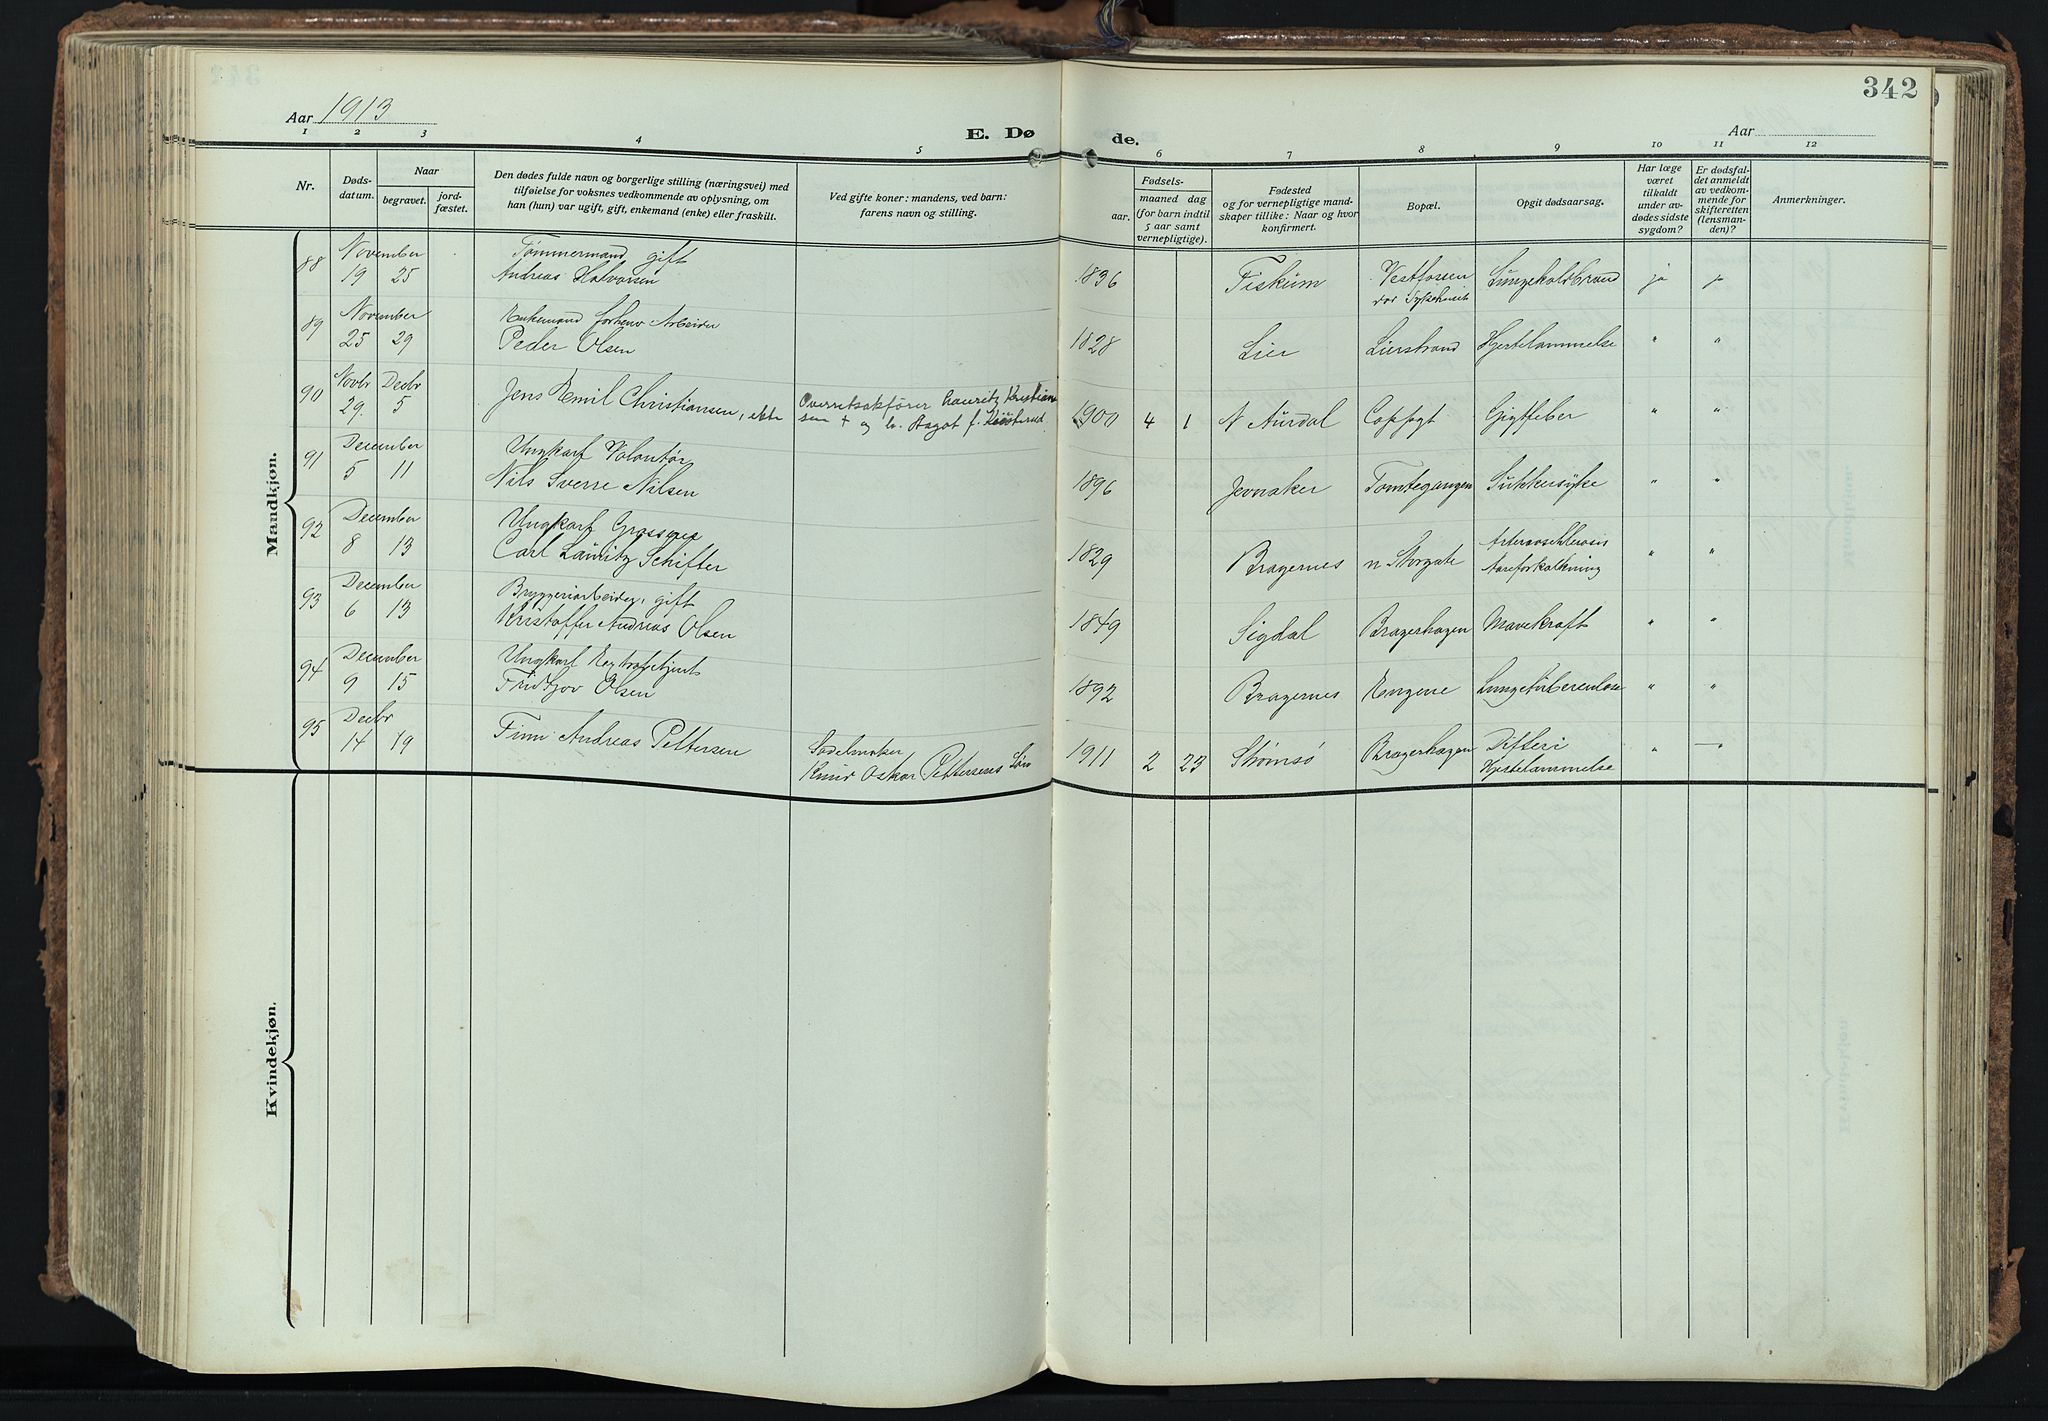 342
Aar 1913
Aar
E. Dø
de.
1 2 3 4 5 6 7 8 9 10 11 12
Nr.
Døds-
datum.
Naar
begravet.
jord-
fæstet.
Den dødes fulde navn og borgerlige stilling (næringsvei) med
tilføielse for voksnes vedkommende av oplysning, om
han (hun) var ugift, gift, enkemand (enke) eller fraskilt.
Ved gifte koner: mandens, ved barn:
farens navn og stilling.
Fødsels-
aar. maaned dag
(for barn indtil
5 aar samt
vernepligtige).
Fødested
og for vernepligtige mand-
skaper tillike: Naar og hvor
konfirmert.
Bopæl.
Opgit dødsaarsag.
Har læge
været
tilkaldt
under av-
dødes sidste
sygdom?
Er dødsfal-
det anmeldt
av vedkom-
mende for
skifteretten
(lensman-
den)?
Anmerkninger.
Mandkjøn.
88 November Tømmermand gift
19 25 Andreas Halvorsen 1836 Fiskum Vestfossen Lungekoldbrand ja
89 November Enkemand forhenv Arbeider
25 29 Peder Olsen 1828 Lier Lierstrand Hjertelammelse " "
90 Novbr Decbr Jens Emil Christiansen, ekte Overretsakfører Lauritz Kristian-
29. 5 sen + og h. Dagot f. 1900 4 1 N Aurdal Gigtfeber " "
91 December Ungkarl Volontør
5 11 Nils Sverre Nilsen 1896 Jevnaker Tomtegangen Sukkersyke " "
92 December Ungkarl
8 13 Carl Lauritz Schifter 1829 Bragernes n Storgate Arteriosclerosis " "
Aareforkalkning
93 December Bryggeriarbeider, gift
6 13 Kristoffer Andreas Olsen 1849 Sigdal Bragerhagen Mavekræft " "
94 December Ungkarl Extrabetjent
9 15 Fridtjov Olsen 1892 Bragernes Engene Lungetuberculose " "
95 Decbr Finn Andreas Pettersen
14 19 Sadelmaker 1911 2 23 Strømsø Bragerhagen Difteri " —
Knud Oskar Pettersens Søn Hjertelammelse
Kvindekjøn.